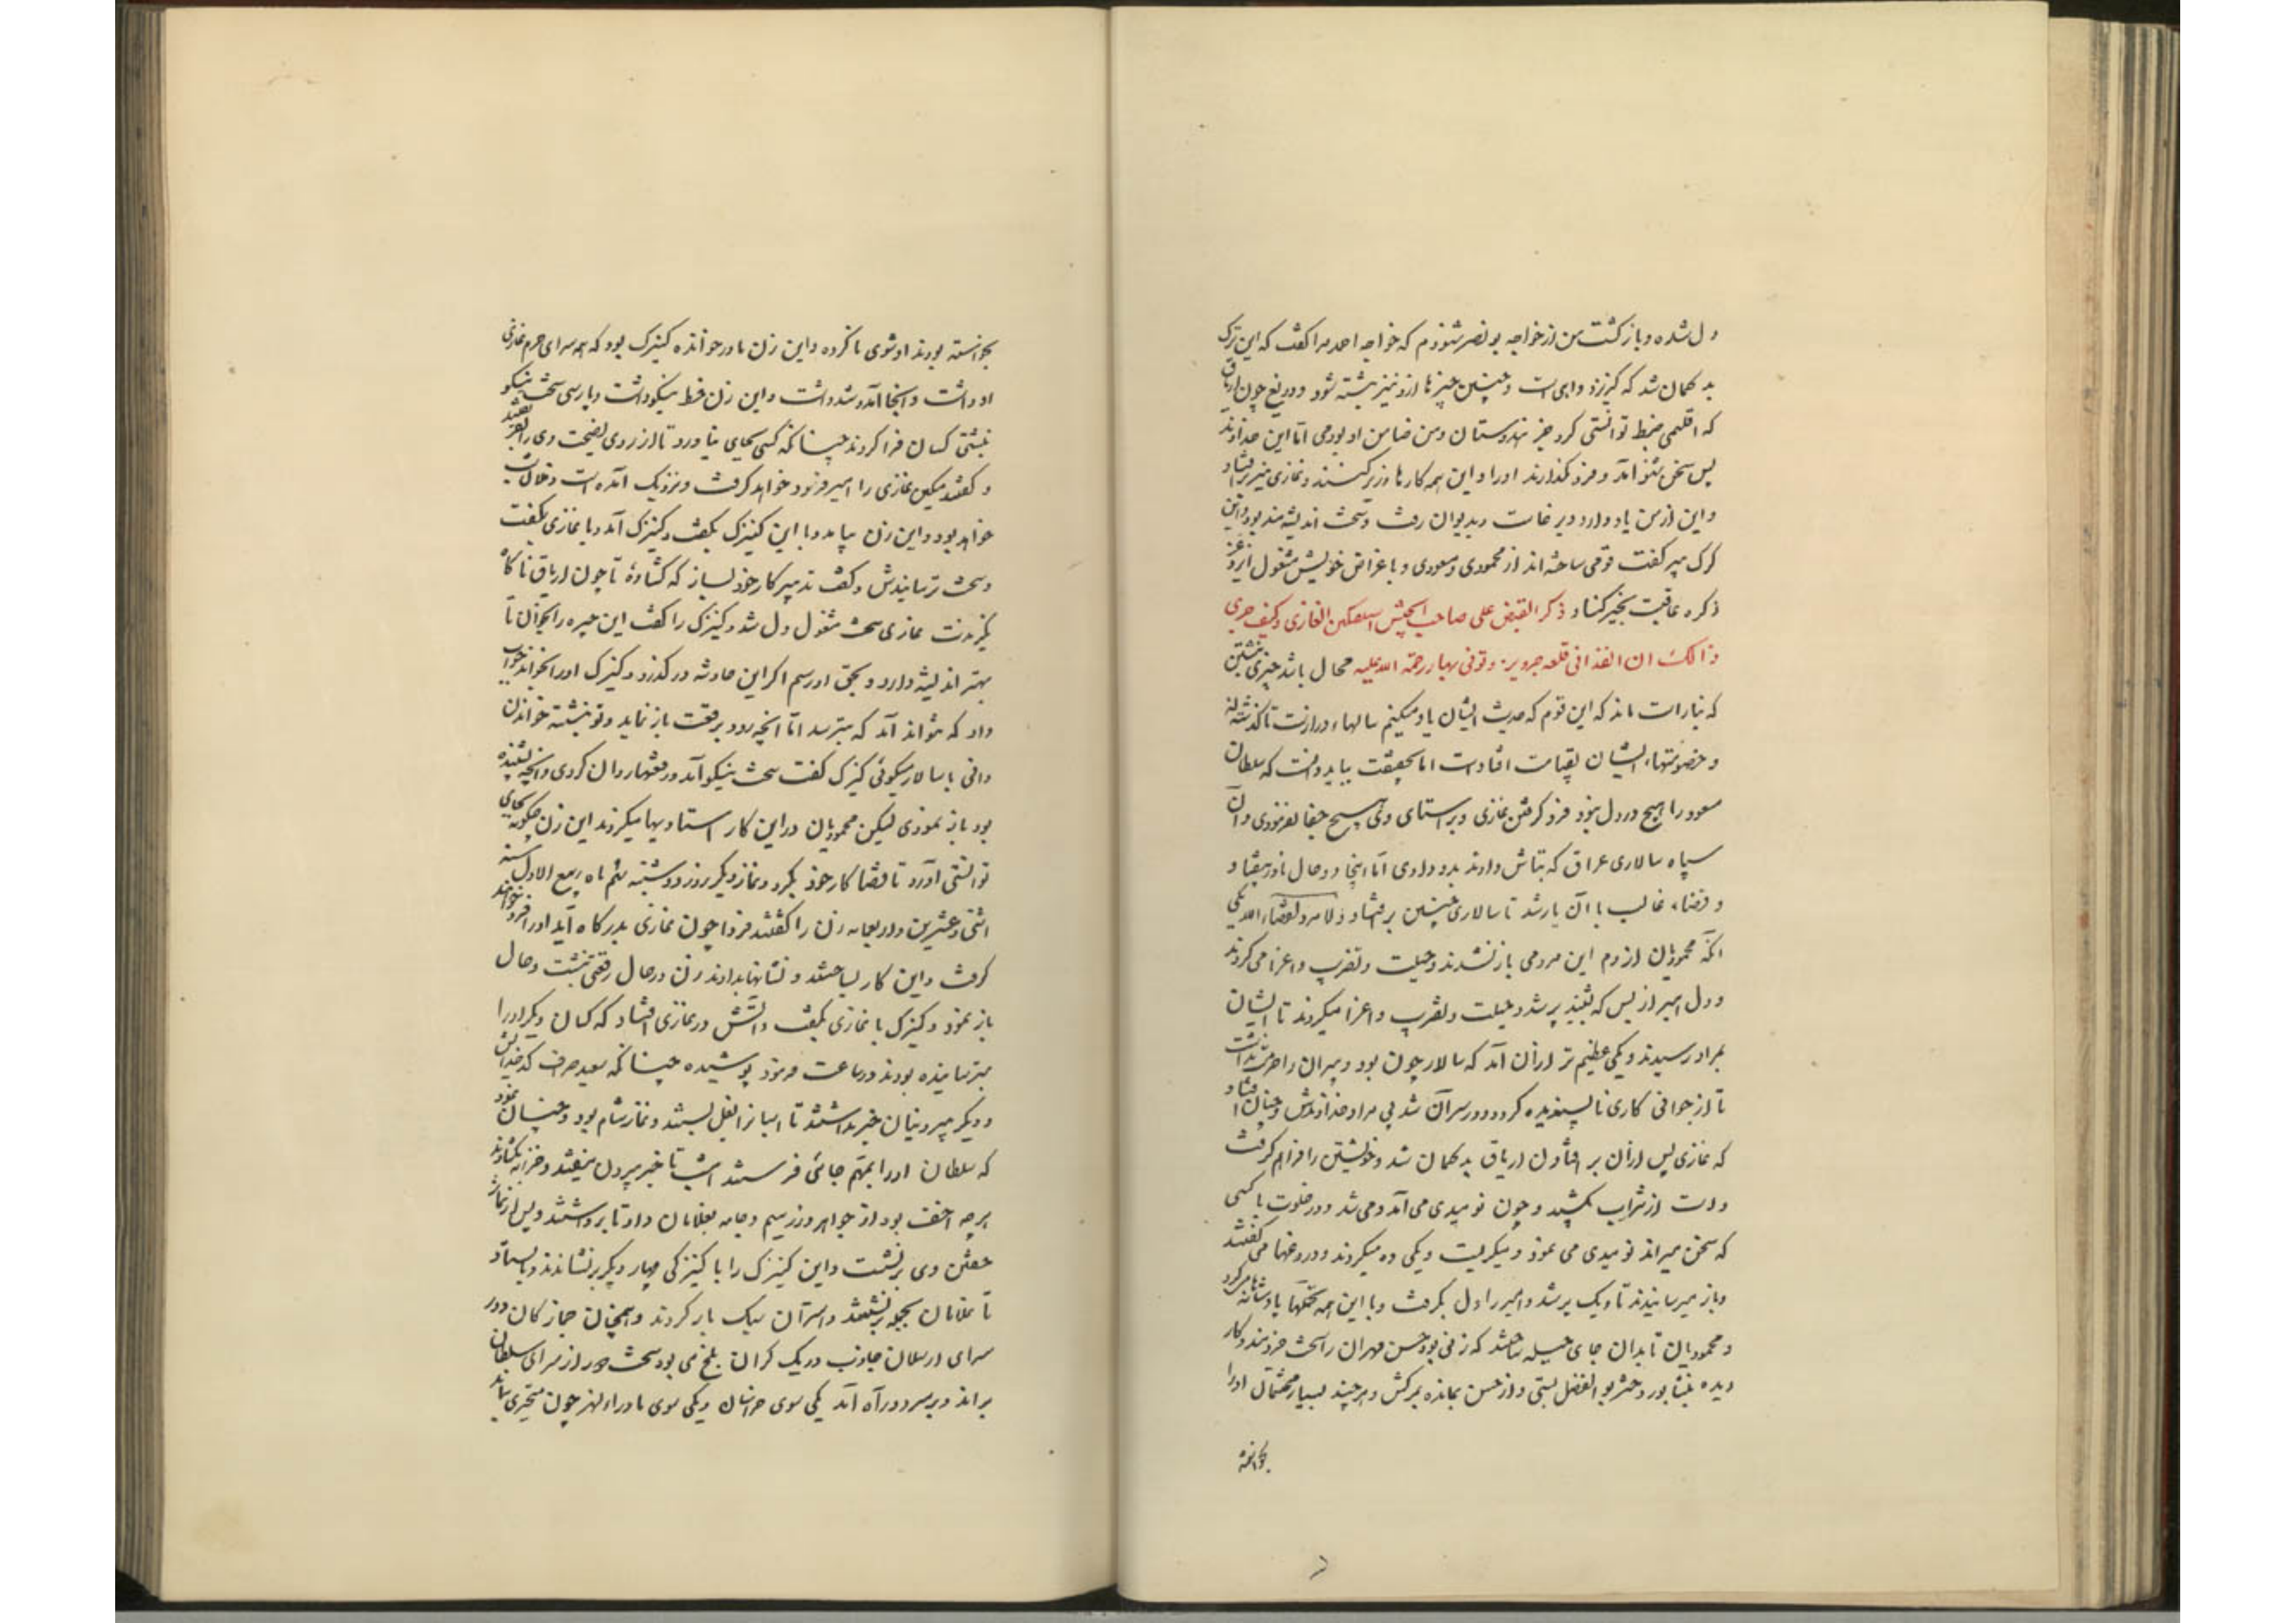 دل شده و باز گشت من از خواجه بونصر شنودم که خواجه احمد مرا گفت که این ترک
بد گمان شد که گربز و داهی است و چنین چیزها ازو نیز بنشسته شود و دریغ چون اریاق
که اقلیمی ضبط توانستی کرد جز هندوستان و من ضامن او بودمی اما این خداوند
بس سخن شنو آمد و فرو نگذارند او را و این همه کارها زیر و زبر کنند و غازی نیز برافتاد
و این از من یاد دارد و برخاست و بدیوان رفت و سخت اندیشه‌مند بود و این
گرگ پیر گفت قومی ساخته‌اند از محمودی و مسعودی و باغراض خویش مشغول ایزد عز
ذکره عاقبت بخیر کناد ذکر القبض علی صاحب الجیش آسیغتکین الغازی و کیف جری
ذالک ان انفذ الی قلعه جردیز و توفی بها رحمة الله علیه محال باشد چیزی نبشتن
که بناراست ماند که این قوم که حدیث ایشان یاد میکنم سالهاء دراز است تا گذشته‌اند
و خصومتهاء ایشان بقیامت افتاد است اما بحقیقت بباید دانست که سلطان
مسعود را هیچ در دل نبود فرو گرفتن غازی و براستای وی هیچ جفا نفرمودی و آن
سپاه سالاری عراق که بتاش دادند بدو دادی اما اینجا دو حال نادر بیفتاد
و قضاء غالب با آن یار شد تا سالاری چنین برافتاد و لا مرد لقضاء الله یکی
آنکه محمودیان از دم این مرد می باز نشدند و حیلت و تضریب و اغرا می کردند
و دل امیر از بس که بشنید پر شد و حیلت و تضریب و اغرا میکردند تا ایشان
بمراد رسیدند و یکی عظیم‌تر از آن آمد که سالار جوان بود و پیران را حرمت نداشت
تا از جوانی کاری ناپسندیده کرد و در سر آن شد بی مراد خداوندش و چنان افتاد
که غازی پس از آن بر افتادن اریاق بدگمان شد و خویشتن را فراهم گرفت
و دست از شراب بکشید و چون نومیدی می آمد و می شد و در خلوت با کسی
که سخن میراند نومیدی می نمود و میگریست و یکی ده میکردند و دروغها می گفتند
و باز میرسانیدند تا دیک پر شد و امیر را دل بگرفت و با این همه تحملها پادشاهانه میکرد
و محمودیان تا بدان جای حیله ساختند که زنی بود حسن مهران را سخت خردمند و کار
دیده بنشابور دختر بوالفضل بستی و از حسن بمانده بمرگش و هر چند بسیار محتشمان او را
بخواسته
بخواسته بودند او شوی ناکرده و این زن مادر خوانده کنیزک بود که همه سرای حرم غازی
او داشت و آنجا آمد و شد داشت و این زن خط نیکو داشت و پارسی سخت نیکو
نبشتی کسان فرا کردند چنانکه کسی بجای نیاورد تا از روی نصیحت وی را بفریفتند
و گفتند مسکین غازی را امیر فرو خواهد گرفت و نزدیک آمده است و فلان شب
خواهد بود و این زن بیامد و با این کنیزک بگفت و کنیزک آمد و با غازی بگفت
و سخت ترسانیدش و گفت تدبیر کار خود بساز که گشاده تا چون اریاق ناگاه
نگیرندت غازی سخت مشغول دل شد و کنیزک را گفت این حره را بخوان تا
بهتر اندیشه دارد و بحق او رسم اگر این حادثه در گذرد و کنیزک او را بخواند جواب
داد که نتواند آمد که بترسد اما آنچه رود برقعت باز نماید و تو نبشته خواندن
دانی با سالار میگوئی کنیزک گفت سخت نیکو آمد و رقعتها روان کردی و آنچه شنیده
بود باز نمودی لیکن محمودیان در این کار استادیها میکردند این زن چگونه بجای
توانستی آورد تا قضا کار خود بکرد و نماز دیگر روز دوشنبه نهم ماه ربیع الاول سنه
اثنی و عشرین و اربعمایه زن را گفتند فردا چون غازی بدرگاه آید او را فرو خواهند
گرفت و این کار بساختند و نشانها بدادند زن در حال رقعتی نبشت و حال
باز نمود و کنیزک با غازی بگفت و آتش در غازی افتاد که کسان دیگر او را
بترسانیده بودند در ساعت فرمود پوشیده چنانکه سعید صراف کدخدایش
و دیگر بیرونیان خبر نداشتند تا اسبانرا نعل ببستند و نماز شام بود و چنان نمود
که سلطان او را بمهم جائی فرستد امشب تا خبر بیرون نیفتد و خزانه بگشادند
هر چه اخف بود از جواهر و زر و سیم و جامه بغلامان داد تا برداشتند و پس از نماز
خفتن وی برنشست و این کنیزک را با کنیزکی چهار دیگر برنشاندند و بایستاد
تا غلامان بجمله برنشستند و استران سبک بار کردند و همچنان جمازگان و در
سرای ارسلان جاذب در یک کران بلخ می بود سخت دور از سرای سلطان
براند و بر سر دو راه آمد یکی سوی خراسان و یکی سوی ماوراءالنهر چون متحیری بماند